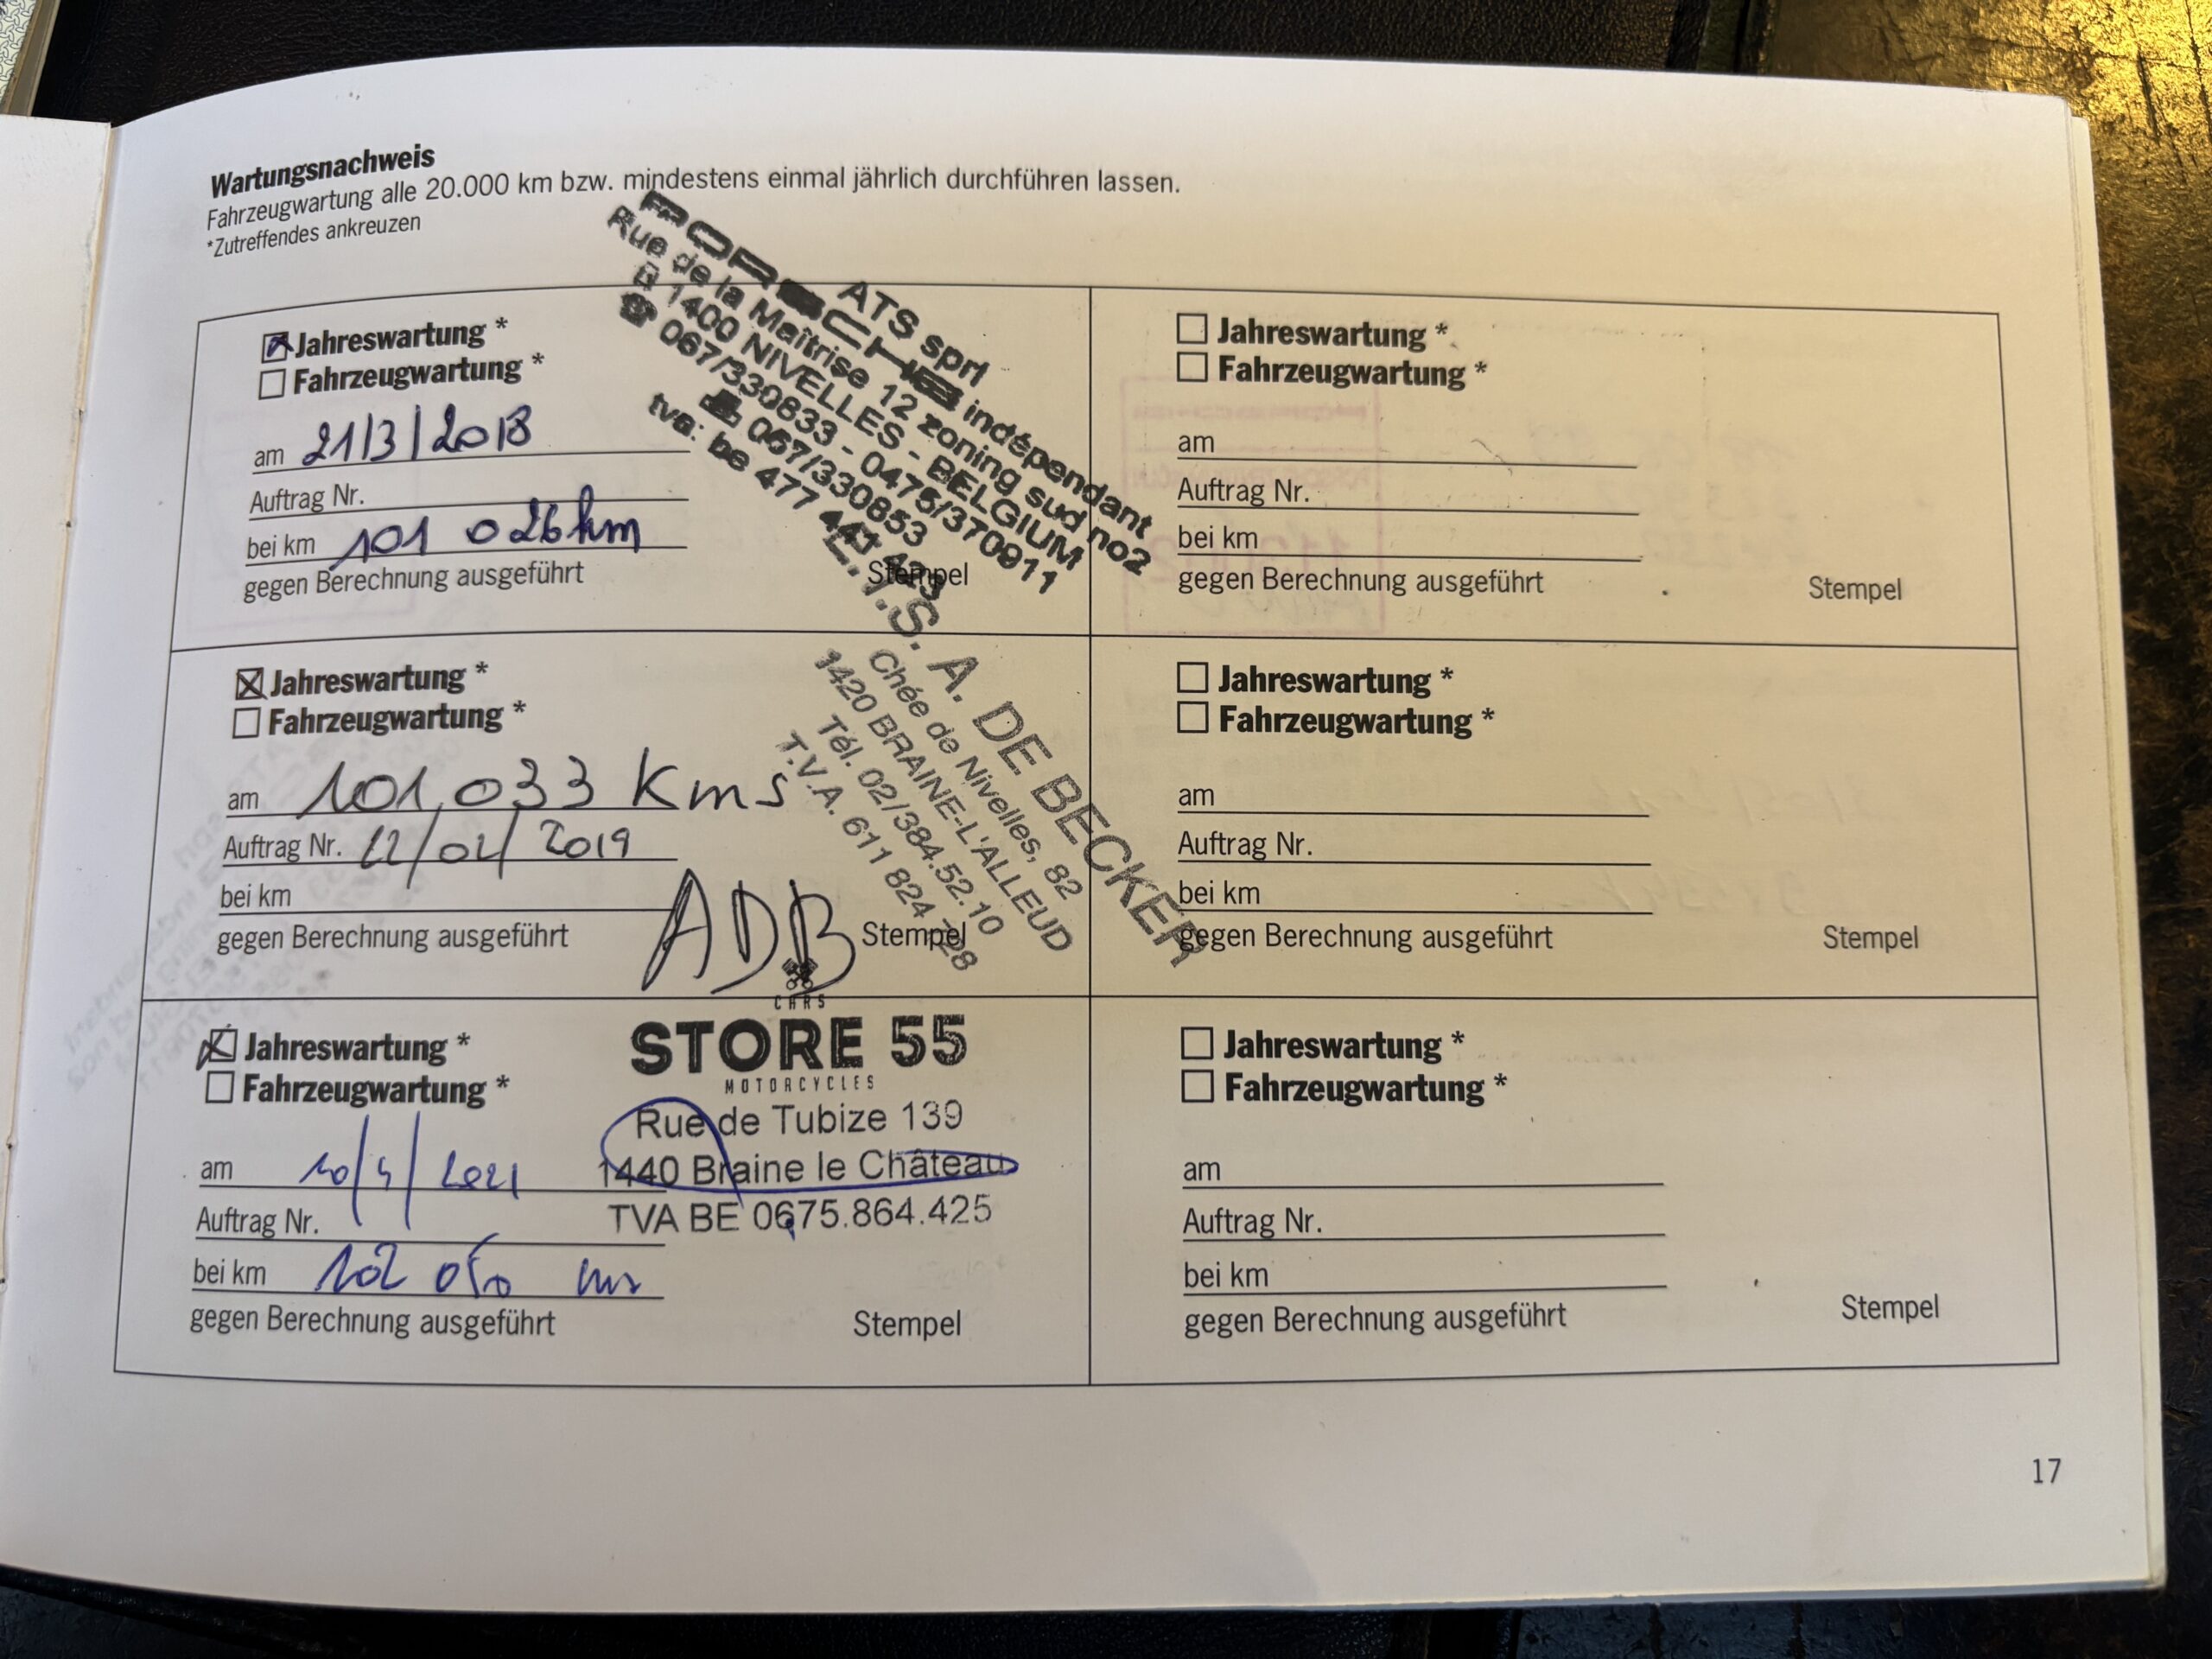 Wartungsnachweis
Fahrzeugwartung alle 20.000 km bzw. mindestens einmal jährlich durchführen lassen.
*Zutreffendes ankreuzen
Jahreswartung *
Fahrzeugwartung *
am 21/3/2018
Auftrag Nr.
bei km 101 026 km
gegen Berechnung ausgeführt
Stempel
ATS sprl
PORSCHE indépendant
Rue de la Maîtrise 12 zoning sud no2
1400 NIVELLES - BELGIUM
067/330833 - 0475/370911
067/330853
tva: be 477 447 423
Jahreswartung *
Fahrzeugwartung *
am 101,033 Kms
Auftrag Nr. 2019
bei km
gegen Berechnung ausgeführt
ADB
Stempel
E.T.S. A. DE BECKER
Chée de Nivelles, 82
1420 BRAINE-L'ALLEUD
Tél. 02/384.52.10
T.V.A. 611 824 728
Jahreswartung *
Fahrzeugwartung *
am 10/4/2021
Auftrag Nr.
bei km 102
gegen Berechnung ausgeführt
CARS
STORE 55
MOTORCYCLES
Rue de Tubize 139
1440 Braine le Château
TVA BE 0675.864.425
Stempel
Jahreswartung *
Fahrzeugwartung *
am
Auftrag Nr.
bei km
gegen Berechnung ausgeführt
Stempel
Jahreswartung *
Fahrzeugwartung *
am
Auftrag Nr.
bei km
gegen Berechnung ausgeführt
Stempel
Jahreswartung *
Fahrzeugwartung *
am
Auftrag Nr.
bei km
gegen Berechnung ausgeführt
Stempel
17